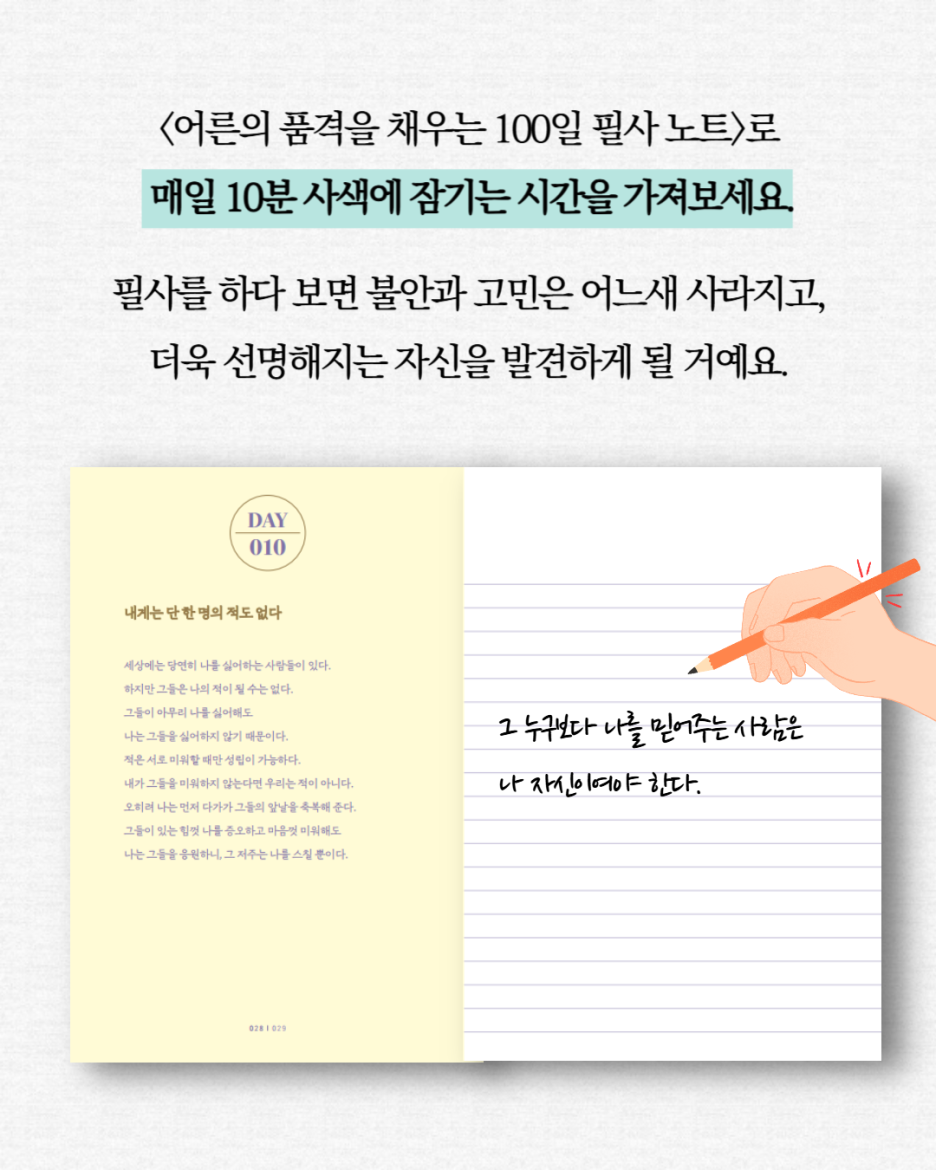 〈어른의 품격을 채우는 100일 필사 노트〉로
매일 10분 사색에 잠기는 시간을 가져보세요.
필사를 하다 보면 불안과 고민은 어느새 사라지고,
더욱 선명해지는 자신을 발견하게 될 거예요.
DAY
010
내게는 단 한 명의 적도 없다
세상에는 당연히 나를 싫어하는 사람들이 있다.
하지만 그들은 나의 적이 될 수는 없다.
그들이 아무리 나를 싫어해도
나는 그들을 싫어하지 않기 때문이다.
적은 서로 미워할 때만 성립이 가능하다.
내가 그들을 미워하지 않는다면 우리는 적이 아니다.
오히려 나는 먼저 다가가 그들의 앞날을 축복해 준다.
그들이 있는 힘껏 나를 증오하고 마음껏 미워해도
나는 그들을 응원하니, 그 저주는 나를 스칠 뿐이다.
028 | 029
그 누구보다 나를 믿어주는 사람은
나 자신이여야 한다.